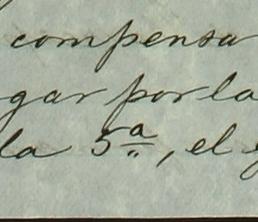 compensa
gar por la
la 5ª, el